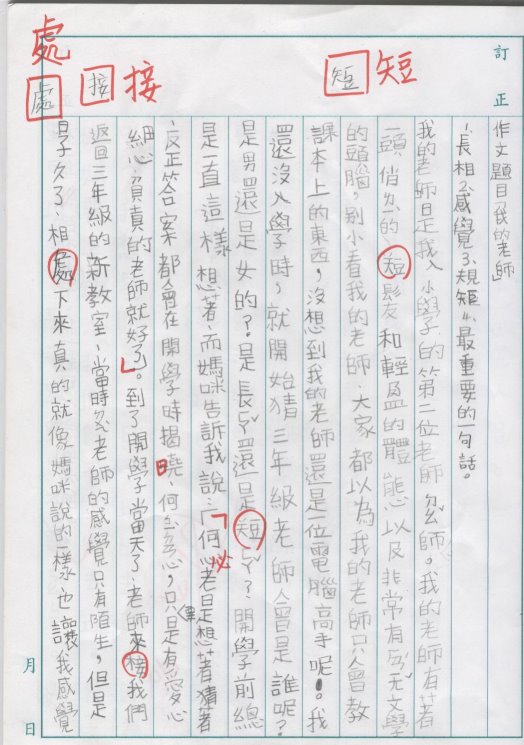 訂正
短
短
接
接
處
處
作文題目「我的老師」
1、長相2、感覺3、規矩4、最重要的一句話。
我的老師是我入小學的第二位老師ㄌㄠ師。我的老師有著
一頭俏ㄌㄧˋ的短髮和輕盈的體態以及非常有ㄌㄧㄤˊ文學
的頭腦，別小看我的老師、大家都以為我的老師只會教
課本上的東西，沒想到我的老師還是一位電腦高手呢！。我
還沒入學時，就開始猜三年級老師會是誰呢？
是男還是女的？是長ㄈㄚˇ還是短ㄈㄚˇ？開學前總
是一直這樣想著、而媽咪告訴我說：「何必老是想著猜著
、反正答案都會在開學時揭曉、何ㄅㄧˋㄉㄢ心，只是有愛心
細心負真的老師就好了」。到了開學當天了、老師來接我們
返回三年級的新教室、當時ㄉㄨㄟˋ老師的感覺只有陌生，但是
日子久了、相處下來真的就像媽咪說的一樣也讓我感覺
必
日
月
日